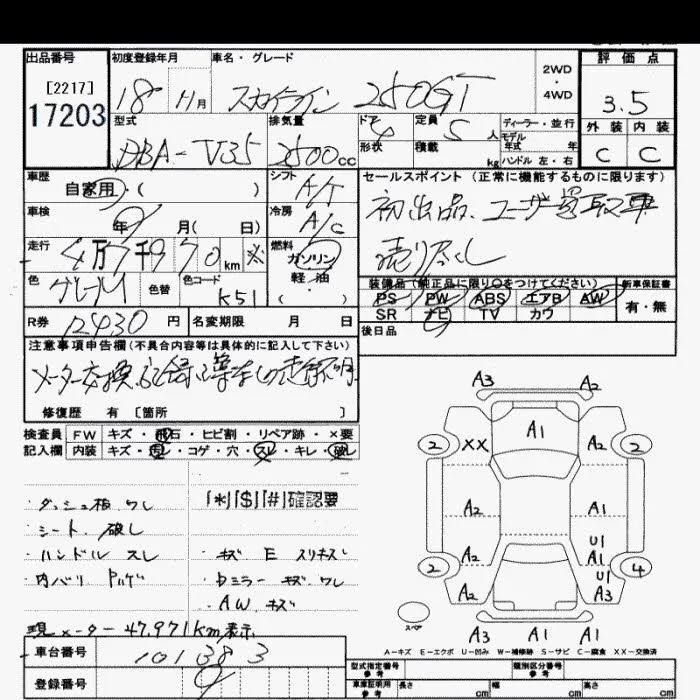 出品番号
[2217]
17203
初度登録年月
18 11月
車名・グレード
スカイライン 250GT
2WD
・
4WD
評価点
3.5
外装 内装
C C
型式
DBA-V35
排気量
2500cc
ドア
4
形状
定員
5人
積載
kg
ディーラー・並行
モデル
年式 年
ハンドル 左・右
車歴
自家用・( )
シフト
A/T
セールスポイント (正常に機能するものに限ります)
初出品、ユーザー買取車
売り尽くし
車検
年 月( 日)
冷房
A/C
走行
4万7千970km ※
燃料
ガソリン
軽・油
( )
色
グレーM
色替
色コード
K51
装備品(純正品に限り○をつけてください)
PS PW ABS エアB AW
SR ナビ TV カワ
新車保証書
有・無
後日品
R券 12430円
名変期限 月 日
注意事項申告欄(不具合内容等は具体的に記入して下さい)
メーター交換 記録簿なし 走行不明
修復歴 有 [箇所 ]
検査員
記入欄
FW キズ・飛石・ヒビ割・リペア跡・×要
内装 キズ・汚レ・コゲ・穴・スレ・キレ・破レ
・ダッシュ板 ワレ
・シート 破レ
・ハンドル スレ
・内バリ ハガレ
「*」「$」「#」確認要
・キズ E スリキズ
・Dミラー キズ ワレ
・AW キズ
現メーター 47,971km表示
A3 A2
A1
2 XX A2 2
A2 A1
U1
A2 A1
2 U1 4
A2 A3
スペア
A3 A1 A1
A-キズ E-エクボ U-凹み W-補修跡 S-サビ C-腐食 XX-交換済
車台番号 101383
登録番号
型式指定番号
参考
類別区分番号
参考
車庫証明用
参考
長さ cm 幅 cm 高さ cm